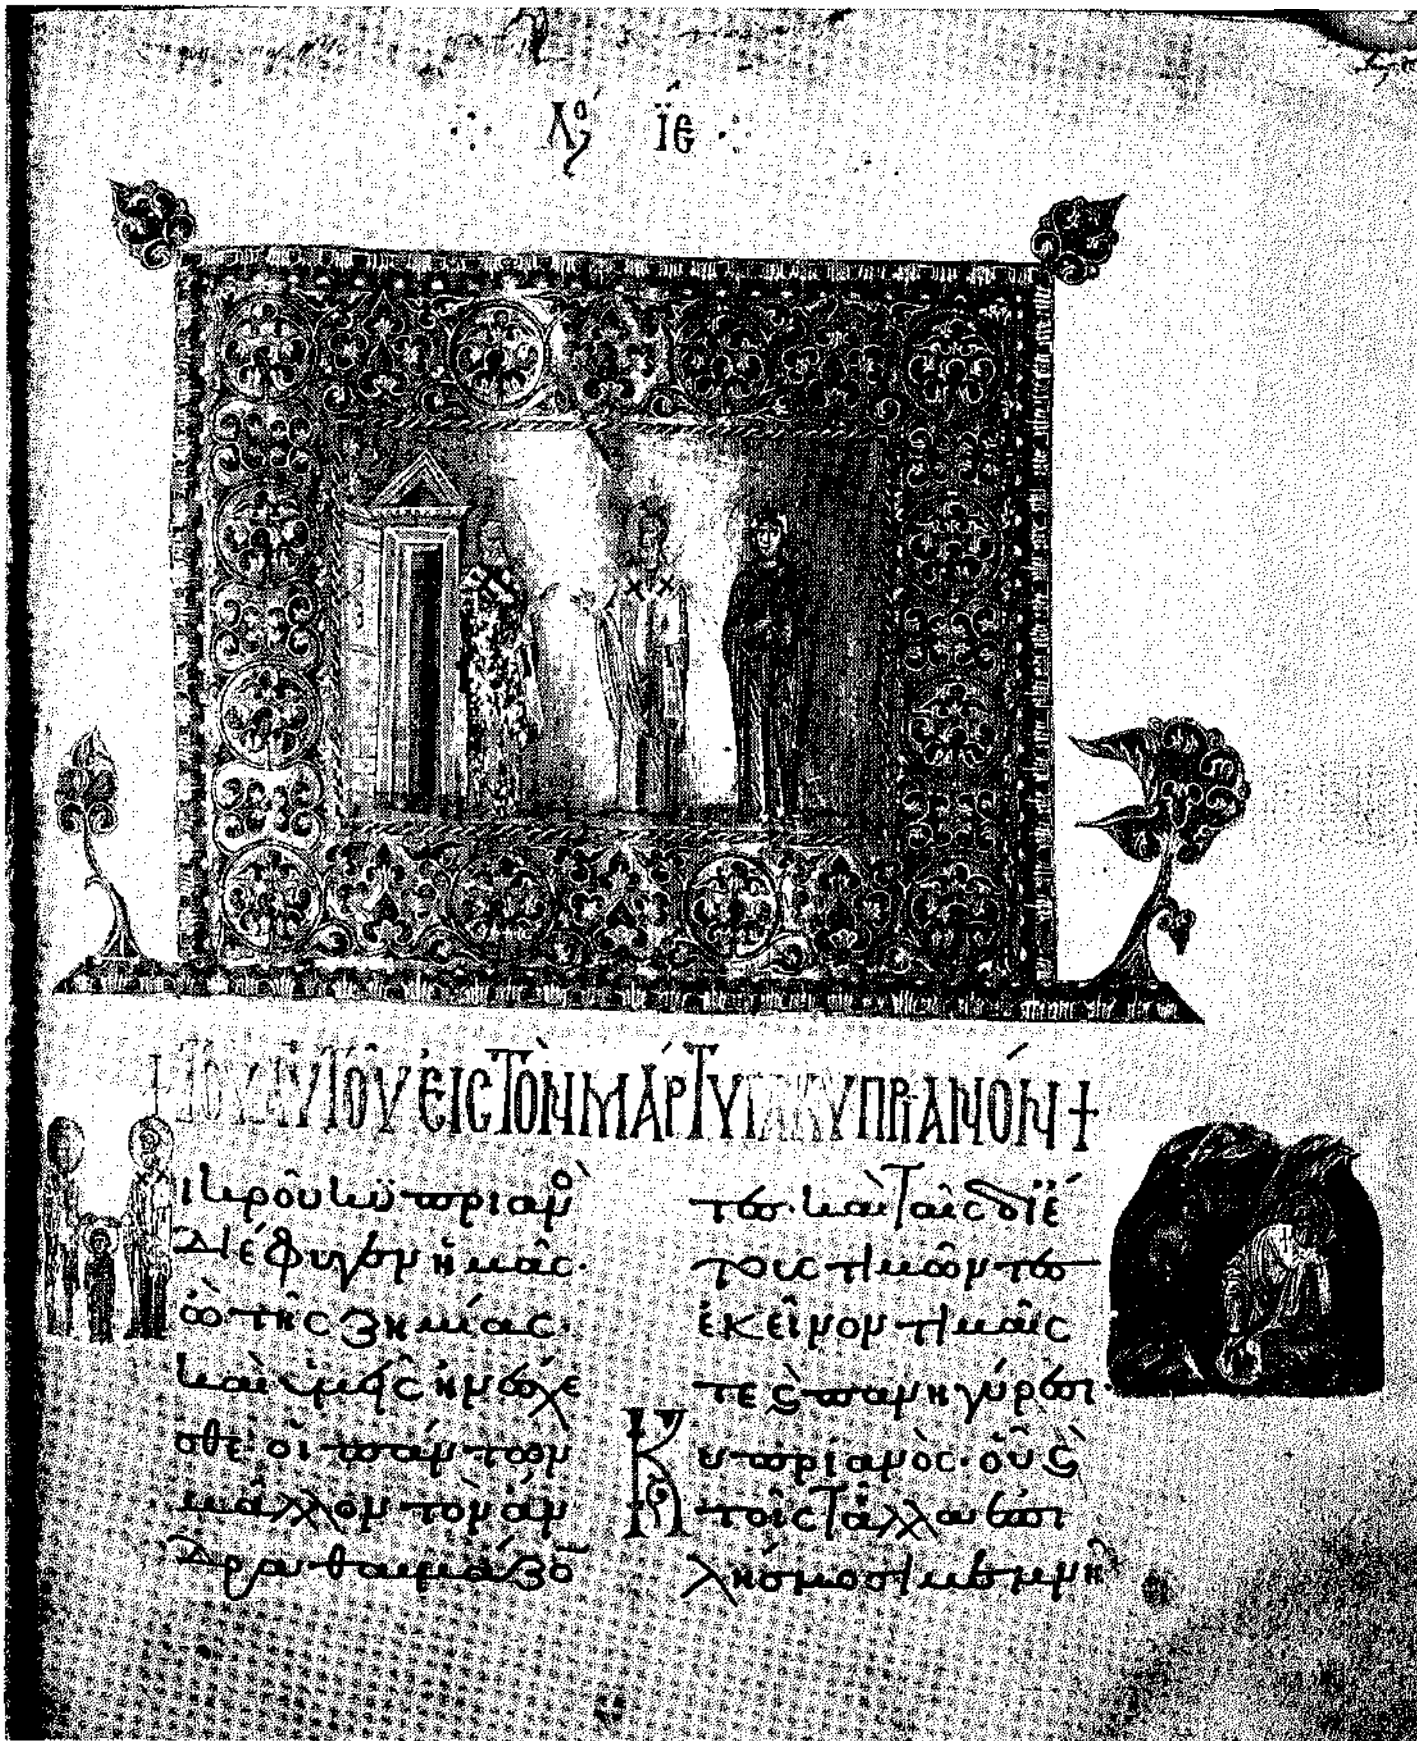 Λό ΙΕ
ΤΟΥ ΑΥΤΟΥ ΕΙΣ ΤΟΝ ΜΑΡΤΥΡΑ ΚΥΠΡΙΑΝΟΝ +
ικροῦ κυπριανὸ
διέφυγεν ἡμᾶς·
ὢ τῆς ζημίας·
καὶ ὑμεῖς ἠνέσχε
σθε· οἱ πάντων
μᾶλλον τὸν ἄν
δρα θαυμάζο
τες· καὶ ταῖς δι ἔ
τους τιμῶντες
ἐκεῖνον τιμαῖς
τε ϗ πανηγύρεσι·
Κυπριανὸς· οὗ ϗ
τοῖς τἄλλα ἐπι
λήσμοσι μεμνῆ